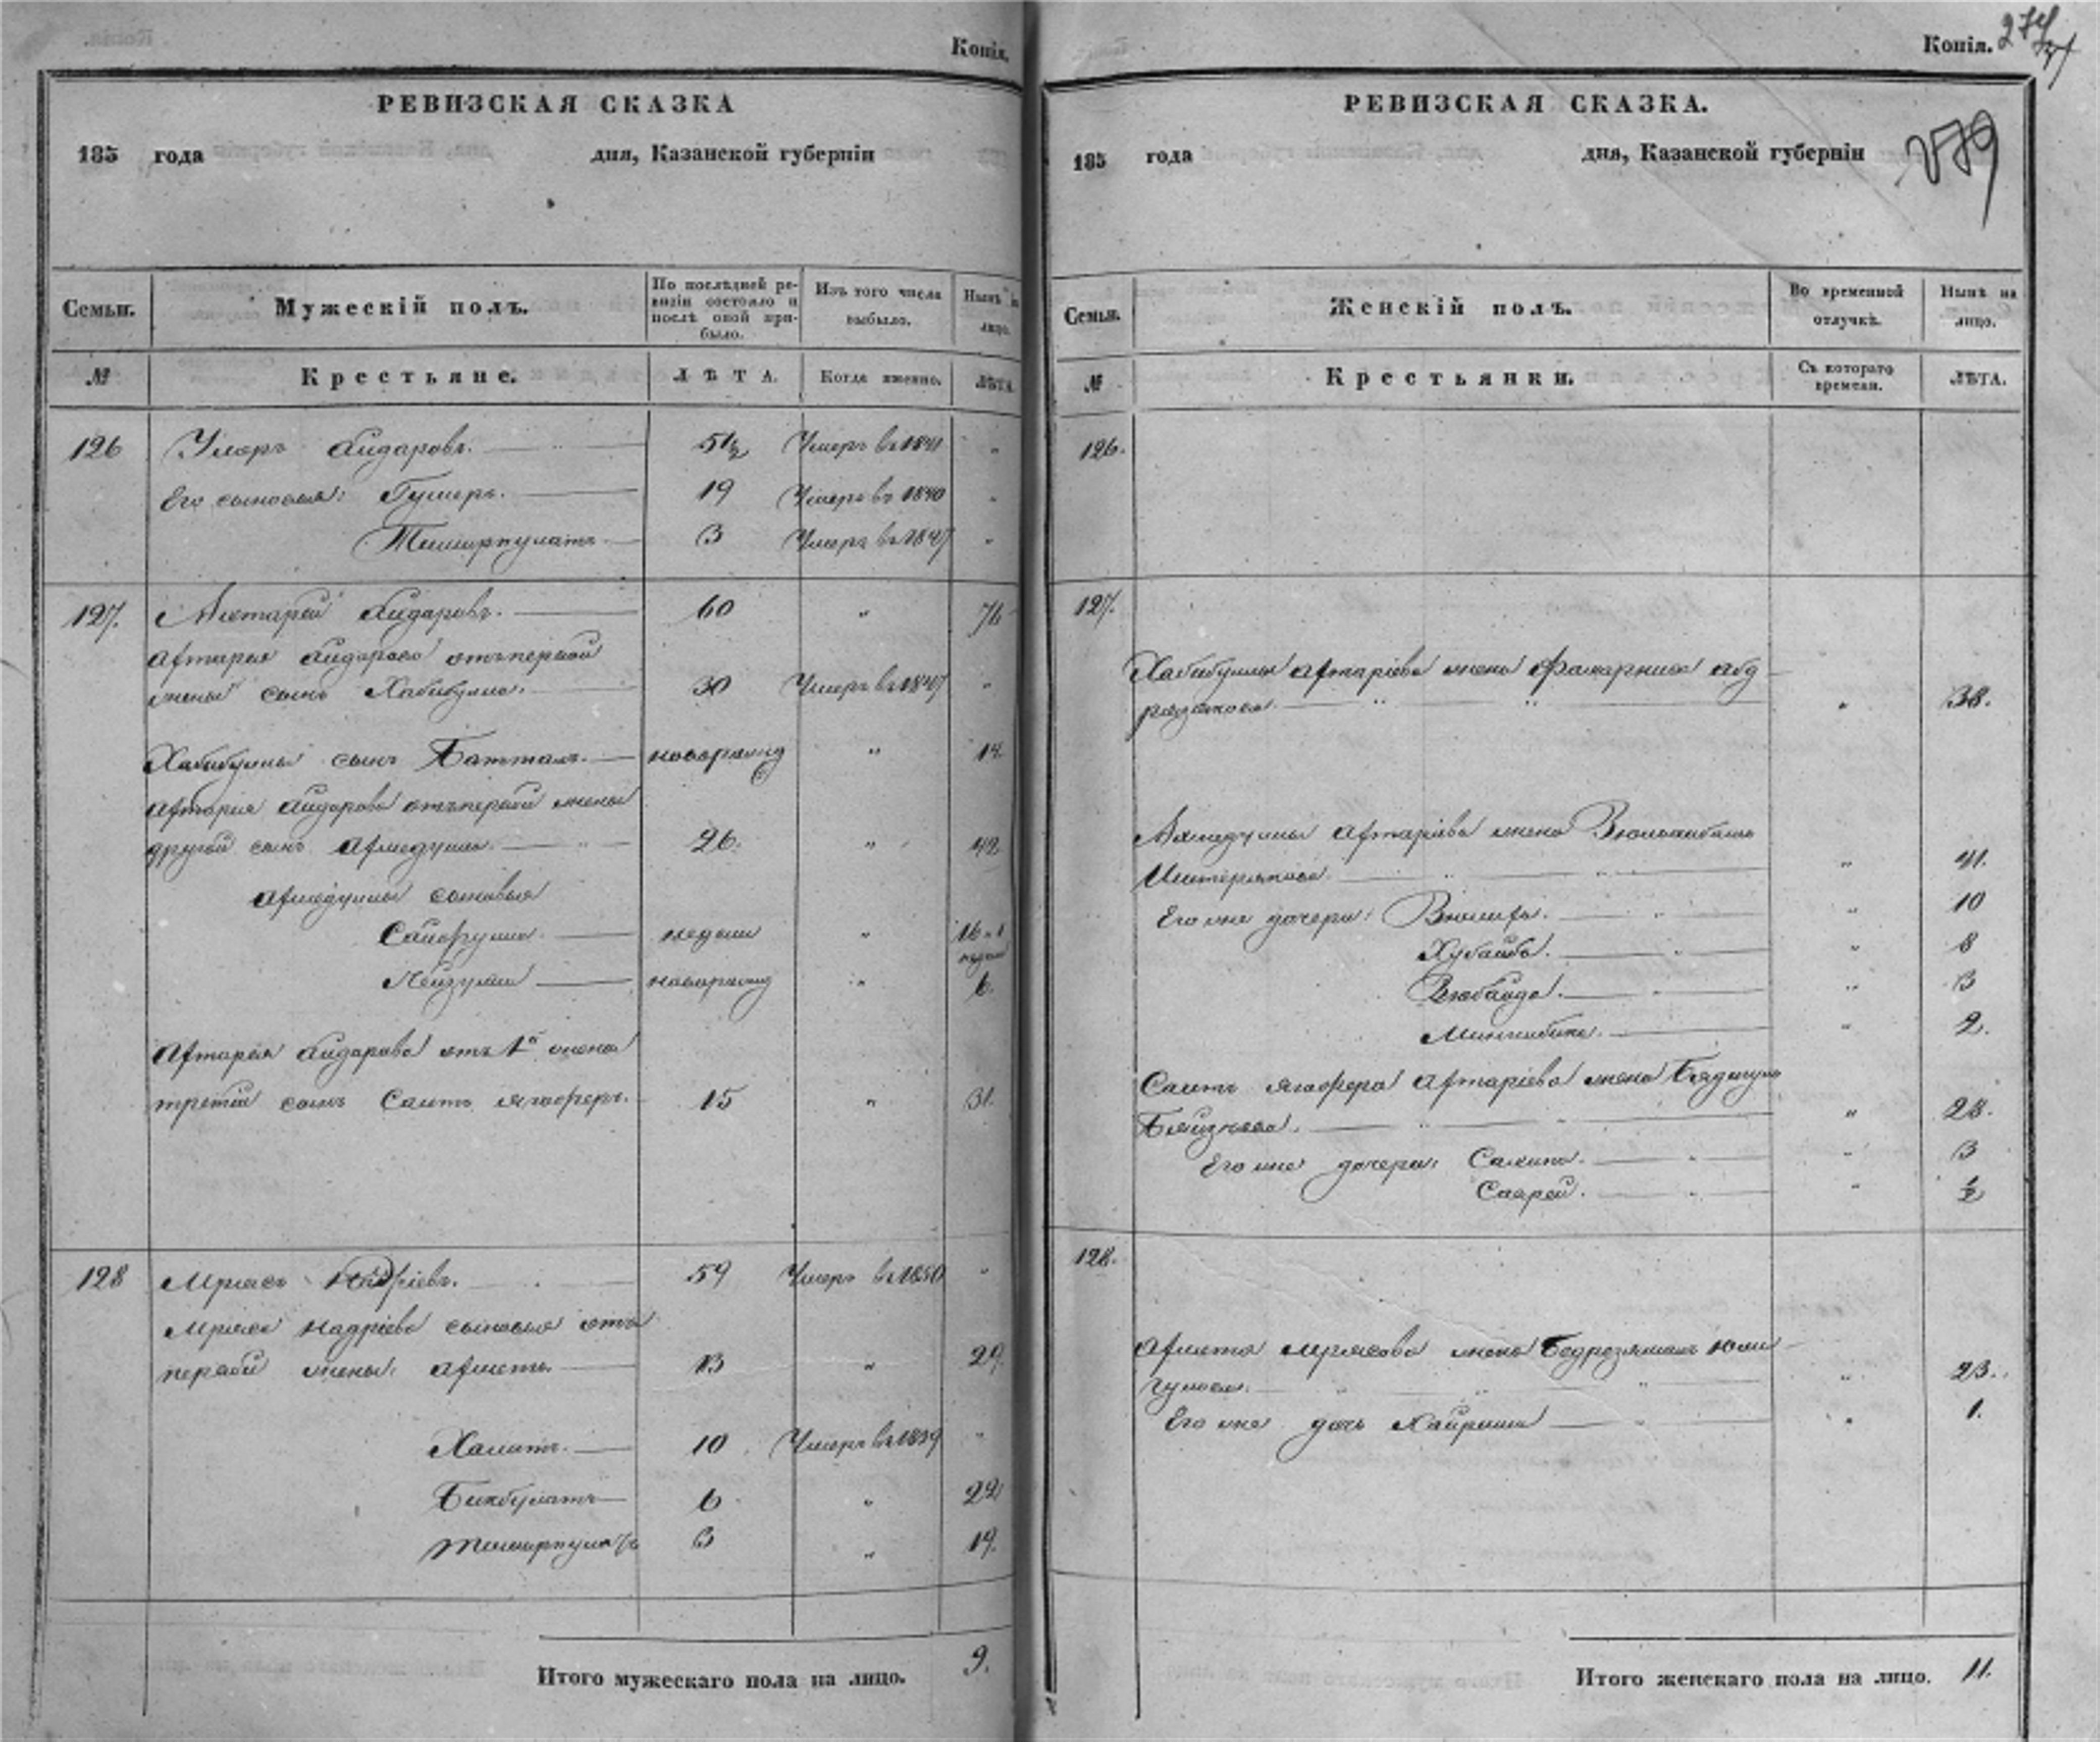 Копія.
РЕВИЗСКАЯ СКАЗКА
185 года дня, Казанской губерніи
Семьи. Мужескій полъ. По послѣдней ревизіи состояло и послѣ оной прибыло. Изъ того числа выбыло. Нынѣ на лицо.
№ Крестьяне. ЛѢТА. Когда именно. ЛѢТА.
126 Умеръ Аидаровъ. 51½ Умеръ въ 1841 „
Его сыновья: Гумеръ. 19 Умеръ въ 1840 „
Тимирпулатъ 3 Умеръ въ 1847 „
127. Айдаровъ. 60 „ 76
Афтарея Аидарова отъ первой
жены сынъ Хабибулла. 30 Умеръ въ 1847 „
Хабибуллы сынъ Батталъ. новорожд „ 14
Афтарея Аидарова отъ первой жены
другой сынъ Ахмедулла. 26. „ 42
Ахмедуллы сыновья
Сайфулла. недели „ 16 и 1
недели
новорожд „ 6.
Афтарея Аидарова отъ 1й жены
третій сынъ Саитъ Ягофаръ. 15 „ 31.
128 Мрясъ 59 Умеръ въ 1850 „
Мряса Надріева сыновья отъ
первой жены: Ахметъ. 13 „ 29.
Хамитъ. 10 Умеръ въ 1839 „
Бикбулатъ 6 „ 22
Тимирпулатъ 3 „ 19.
Итого мужескаго пола на лицо. 9.
Копія. 274
279
РЕВИЗСКАЯ СКАЗКА.
185 года дня, Казанской губерніи
Семьи. Женскій полъ. Во временной отлучкѣ. Нынѣ на лицо.
№ Крестьянки. Съ котораго времени. ЛѢТА.
126.
127.
Хабибуллы Афтаріева жена Абд
разакова. „ 38.
Ахмедуллы Афтаріева жена
„ 41.
Его же дочери: „ 10
Хубайба. „ 8
Зюбайда. „ 3
Мингибика. „ 2.
Саитъ Ягофара Афтаріева жена
„ 28.
Его же дочери: Сакина. „ 3
Саарей. „ ½
128.
Ахмета Мрясова жена Юлы
гулова. „ 23.
Его же дочь „ 1.
Итого женскаго пола на лицо. 11.